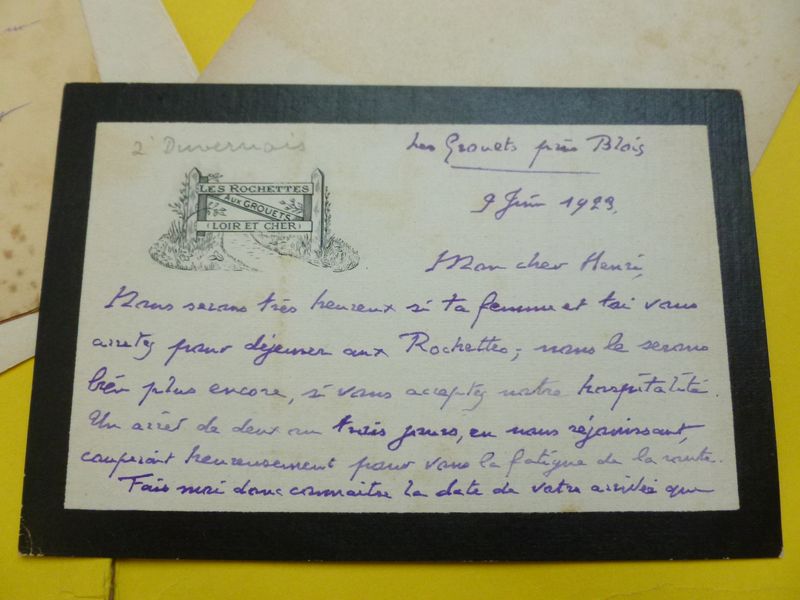 2° Duvernois
LES ROCHETTES
AUX GROUETS
(LOIR ET CHER)
Les Grouets près Blois
9 Juin 1923,
Mon cher Henri,
Nous serons très heureux si ta femme et toi vous
arretez pour déjeuner aux Rochettes; nous le serons
bien plus encore, si vous acceptez notre hospitalité.
Un arrêt de deux ou trois jours, en nous réjouissant,
couperait heureusement pour vous la fatigue de la route.
Fais moi donc connaitre la date de votre arrivée que